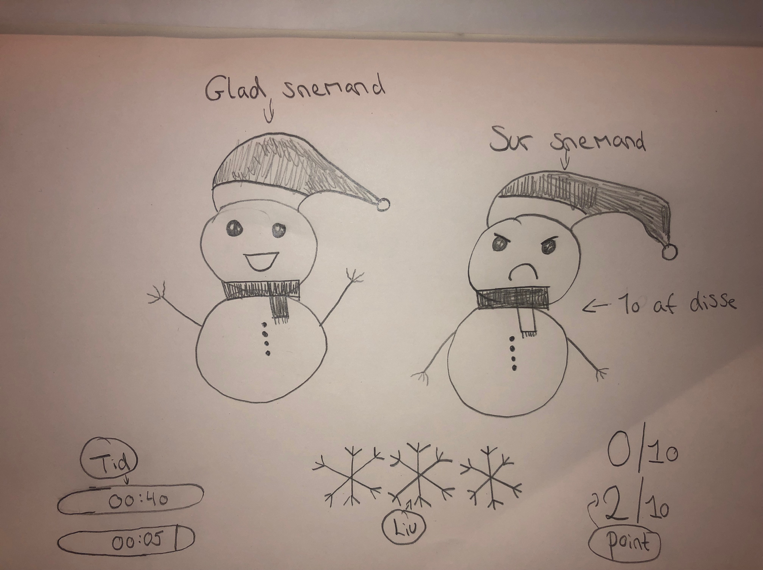 Glad snemand
Sur snemand
10 af disse
Tid
00:40
00:05
Liv
0/10
2/10
point